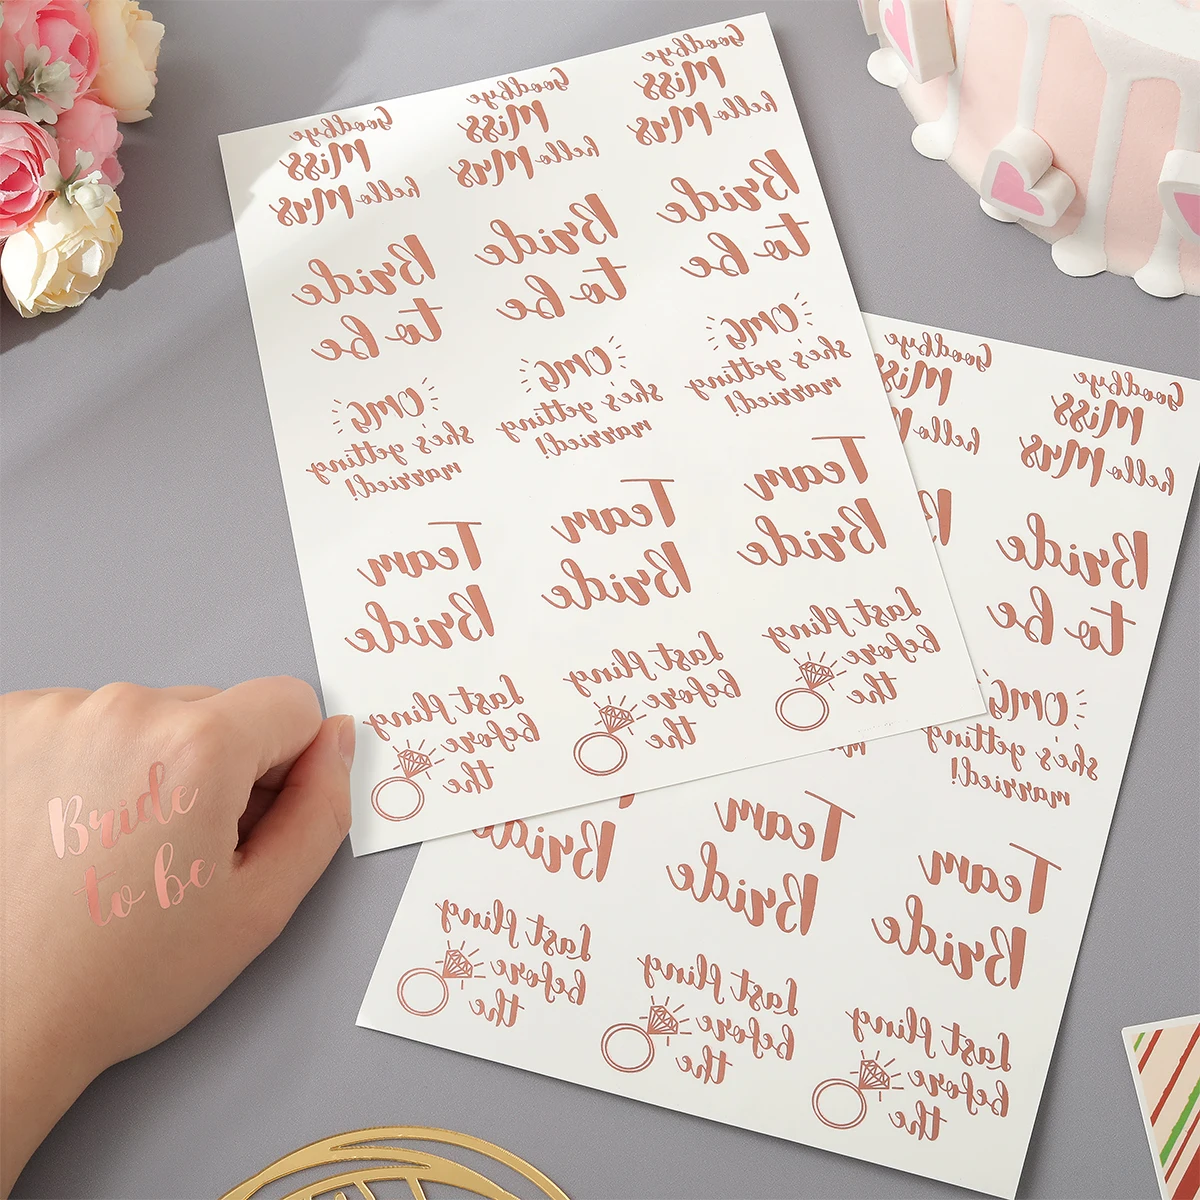 Goodbye
Miss
hello Mrs
Goodbye
Miss
hello Mrs
Goodbye
Miss
hello Mrs
Bride
to be
Bride
to be
Bride
to be
OMG
she's getting
married!
OMG
she's getting
married!
OMG
she's getting
married!
Team
Bride
Team
Bride
Team
Bride
Last fling
before
the
Last fling
before
the
Last fling
before
the
Bride
to be
Goodbye
Miss
hello
Goodbye
Miss
hello Mrs
Bride
to be
OMG
she's getting
married!
Bride
Team
Bride
Team
Bride
Last fling
before
the
Last fling
before
the
Last fling
before
the